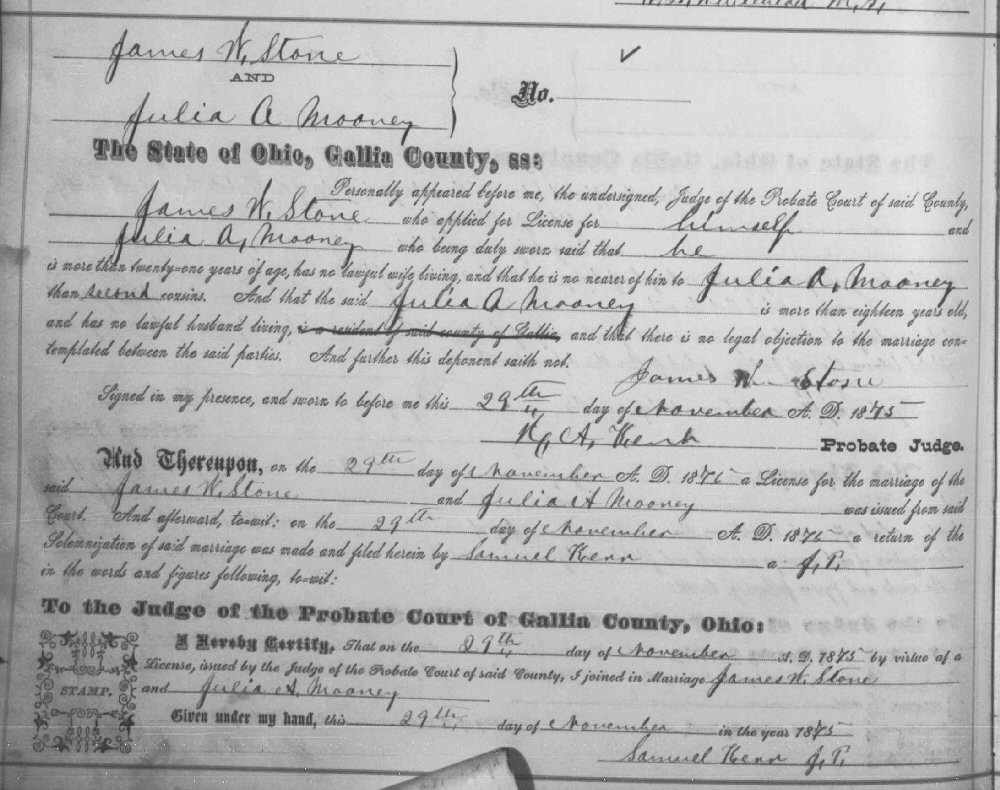 James W. Stone
AND
Julia A Mooney
No.
The State of Ohio, Gallia County, ss:
Personally appeared before me, the undersigned, Judge of the Probate Court of said County,
James W. Stone who applied for License for himself and
Julia A. Mooney who being duly sworn said that he
is more than twenty=one years of age, has no lawful wife living, and that he is no nearer of kin to Julia A. Mooney
than second cousins. And that the said Julia A Mooney is more than eighteen years old,
and has no lawful husband living, is a resident of said county of Gallia, and that there is no legal objection to the marriage con=
templated between the said parties. And further this deponent saith not.
James W. Stone
Signed in my presence, and sworn to before me this 29th day of November A. D. 1875
A. Kerr Probate Judge.
And Thereupon, on the 29th day of November A. D. 1875 a License for the marriage of the
said James W. Stone and Julia A Mooney was issued from said
Court. And afterward, to=wit: on the 29th day of November A. D. 1875 a return of the
Solemnization of said marriage was made and filed herein by Samuel Kerr a J. P.
in the words and figures following, to=wit:
To the Judge of the Probate Court of Gallia County, Ohio:
I Hereby Certify, That on the 29th day of November A. D. 1875 by virtue of a
License, issued by the Judge of the Probate Court of said County, I joined in Marriage James W. Stone
STAMP.
and Julia A. Mooney
Given under my hand, this 29th day of November in the year 1875
Samuel Kerr J. P.